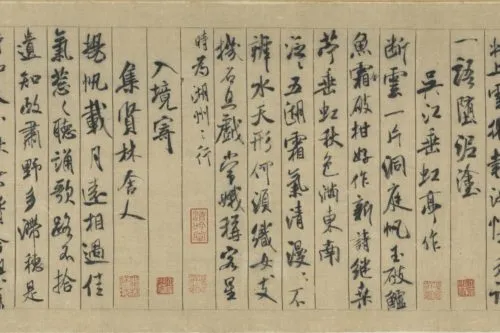 一語墮泥塗
吳江垂虹亭作
斷雲一片洞庭帆玉破鱸
魚霜破柑好作新詩繼桑
苧垂虹秋色滿東南
泛〻五湖霜氣清漫〻不
辨水天形何須織女支
機石且戲常娥稱客星
時為湖州之行
入境寄
集賢林舍人
揚帆載月遠相過佳
氣葱〻聽誦歌路不拾
遺知政肅野多滯穗是